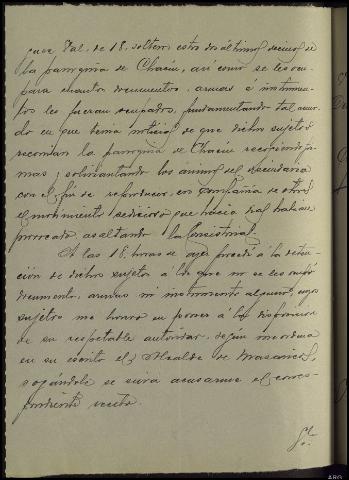 para Val, de 18, soltero, estos dos últimos vecinos de
la parroquia de Chacín, así como se les ocu-
para cuantos documentos, armas é instrumen-
tos les fueran ocupados, fundamentando tal acuer-
do en que tenia noticias de que dichos sujetos
recorrian la parroquia de Chacín recogiendo fir-
mas y soliviantando los animos del vecindario
con el fin de reproducir, en compañia de otros,
el movimiento sedicioso que hacia dias habian
provocado asaltando la Consistorial.
A las 18 horas de ayer procedí á la deten-
ción de dichos sujetos á los que no se les ocupó
documento, armas ni instrumento alguno, cuyos
sujetos me honro en poner á la disposición
de su respetable autoridad, según me ordena
en su escrito el Sr Alcalde de Mazaricos,
rogándole se sirva acusarme el corres-
pondiente recibo.